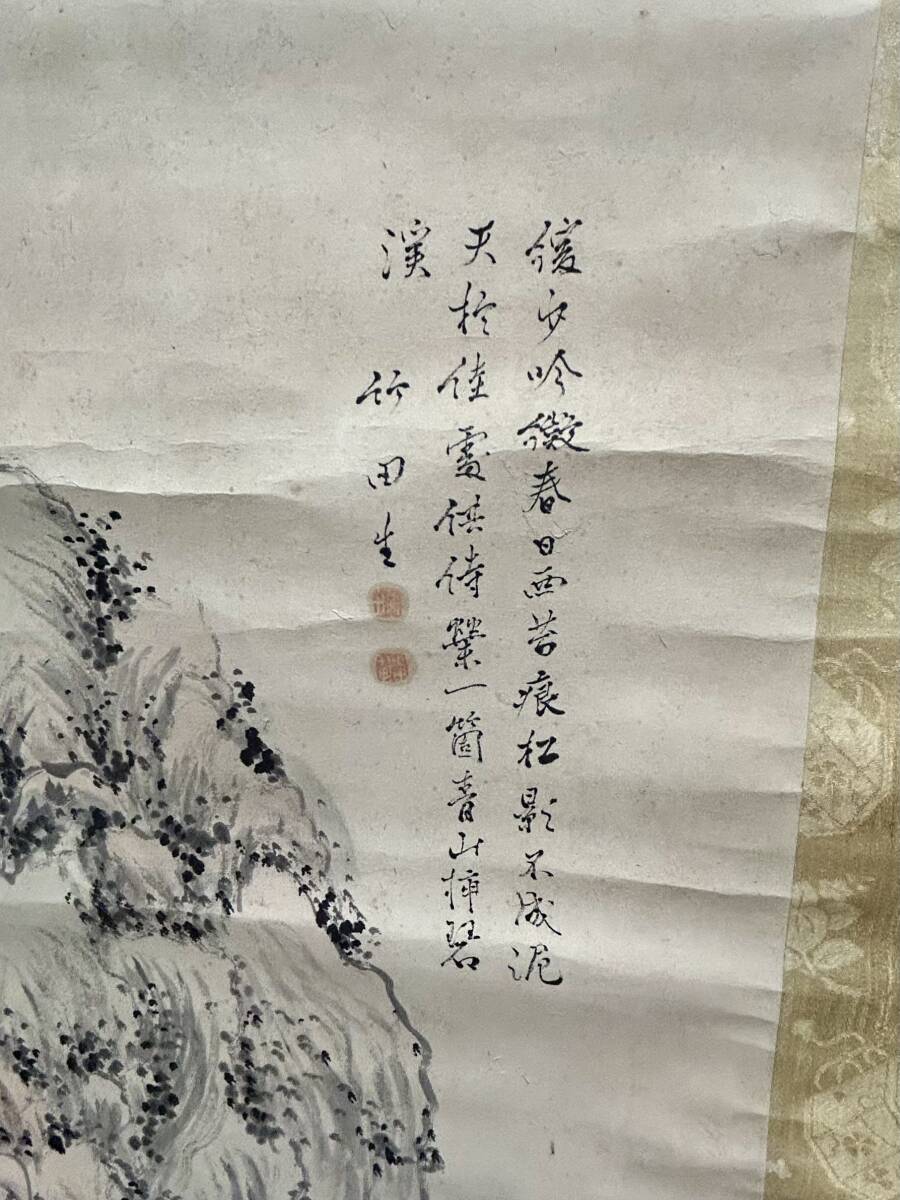 緩步吟微春日西苔痕松影不成泥
天於佳處供詩一箇青山插碧
溪
竹田生